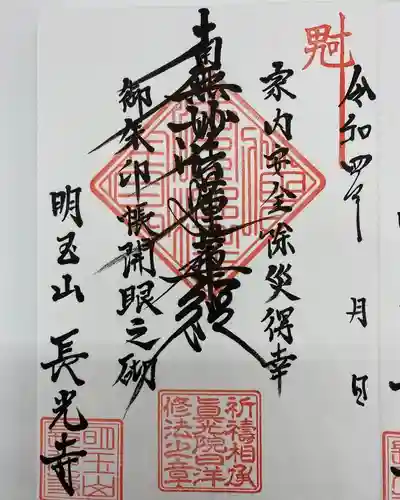 令和四年 月 日
家内安全除災得幸
南無妙法蓮華経
御朱印帳開眼之砌
明玉山 長光寺
祈祷相承
眞光院日洋
修法之章